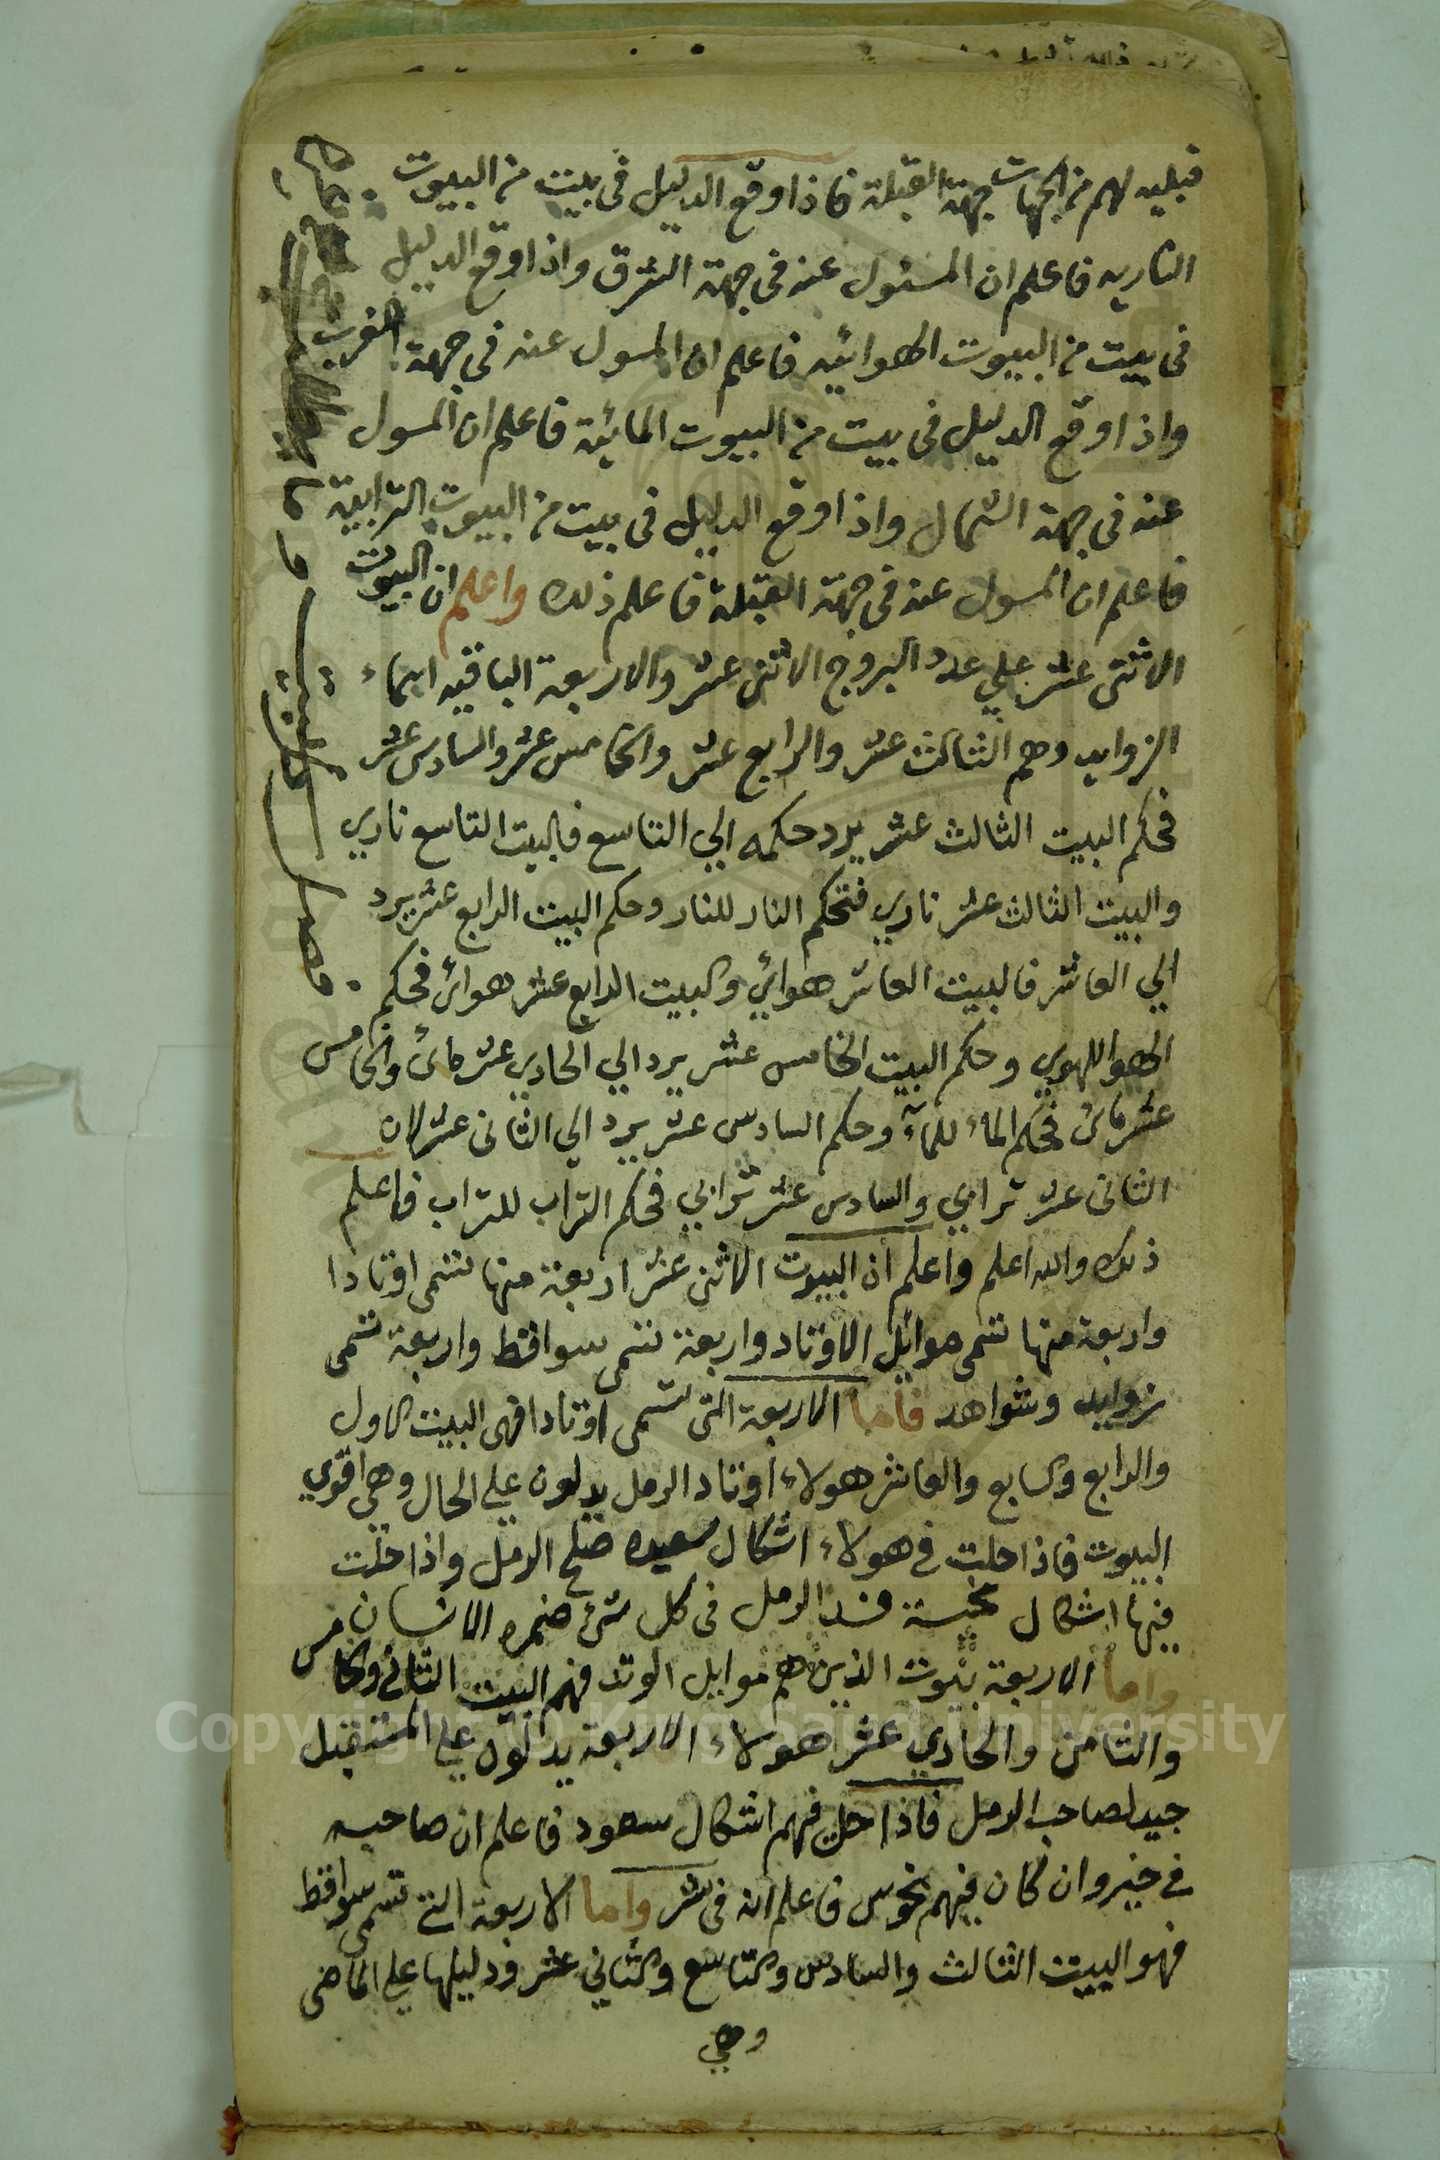 قبليه لهم من الجهات جهة القبلة فاذا وقع الدليل فى بيت من البيوت
الناريه فاعلم ان المسئول عنه فى جهة الشرق واذا وقع الدليل
فى بيت من البيوت الهوائيه فاعلم ان المسول عنه فى جهة الغرب
واذا وقع الدليل فى بيت من البيوت المائية فاعلم ان المسول
عنه فى جهة الشمال واذا وقع الدليل فى بيت من البيوت الترابية
فاعلم ان المسول عنه فى جهة القبلة فاعلم ذلك واعلم ان البيوت
الاثنى عشر علي عدد البروج الاثنى عشر والاربعة الباقيه اسماء
الزوايد وهم الثالث عشر والرابع عشر والخامس عشر والسادس عشر
فحكم البيت الثالث عشر يرد حكمه الي التاسع فالبيت التاسع ناري
والبيت الثالث عشر ناري فتحكم النار للنار وحكم البيت الرابع عشر يرد
الي العاشر فالبيت العاشر هوائي والبيت الرابع عشر هوائى فحكم
الهوا للهوي وحكم البيت الخامس عشر يرد الي الحادي عشر مائى والخامس
عشر مائى فحكم الماء للمآء وحكم السادس عشر يرد الي الثانى عشر لان
الثانى عشر ترابي والسادس عشر ترابي فحكم التراب للتراب فاعلم
ذلك والله اعلم واعلم ان البيوت الاثنى عشر اربعة منها تسمى اوتادا
واربعة منها تسمى موايل الاوتاد واربعة تسمى سواقط واربعة تسمى
زوايد وشواهد فأما الاربعة التى تسمى اوتادا فهى البيت الاول
والرابع والسابع والعاشر هولاء اوتاد الرمل يدلون علي الحال وهي اقوي
البيوت فاذا حلت في هولاء اشكال سعيده صلح الرمل واذا حلت
فيها اشكال نحسة فسد الرمل فى كل شئ ضمره الانسان
واما الاربعة بيوت الذين هم موايل الوتد فهم البيت الثاني والخامس
والثامن والحادي عشر هولاء الاربعة يدلون علي المستقبل
جيد لصاحب الرمل فاذا حل فيهم اشكال سعود فاعلم ان صاحبه
في خير وان كان فيهم نحوس فاعلم انه فى شر واما الاربعة التي تسمى سواقط
فهو البيت الثالث والسادس والتاسع والثاني عشر ودليلها علي الماضى
وهي